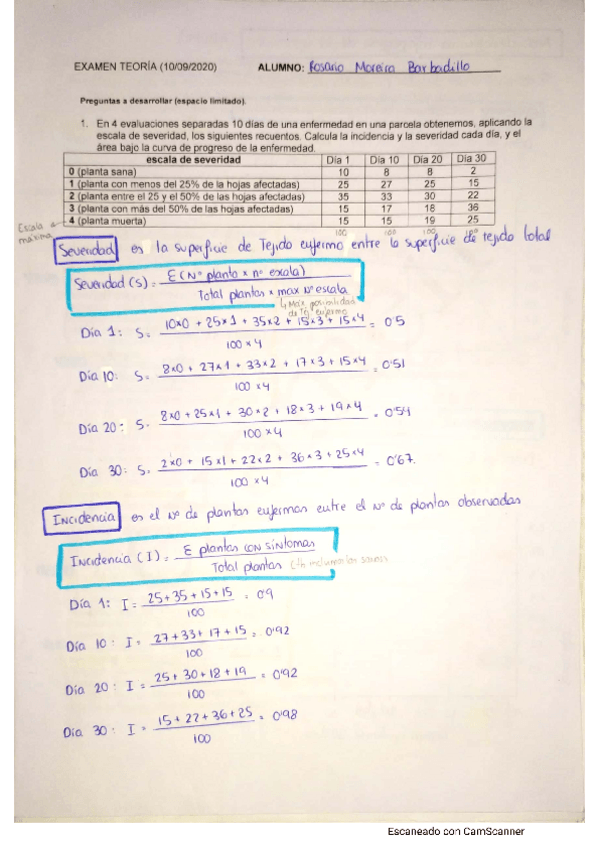 EXAMEN TEORÍA (10/09/2020) ALUMNO: Rosario Moreira Barbadillo
Preguntas a desarrollar (espacio limitado).
1. En 4 evaluaciones separadas 10 días de una enfermedad en una parcela obtenemos, aplicando la
escala de severidad, los siguientes recuentos. Calcula la incidencia y la severidad cada día, y el
área bajo la curva de progreso de la enfermedad.
escala de severidad Día 1 Día 10 Día 20 Día 30
0 (planta sana) 10 8 8 2
1 (planta con menos del 25% de la hojas afectadas) 25 27 25 15
2 (planta entre el 25 y el 50% de las hojas afectadas) 35 33 30 22
3 (planta con más del 50% de las hojas afectadas) 15 17 18 36
4 (planta muerta) 15 15 19 25
Escala máxima
100 100 100 100
Severidad es la superficie de Tejido enfermo entre la superficie de tejido total
Severidad (S) = E (Nº planta x nº escala)
Total plantas x max Nº escala
↳ Máx posibilidad
de Tej. enfermo
Día 1: S = 10x0 + 25x1 + 35x2 + 15x3 + 15x4 = 0'5
100 x 4
Día 10: S = 8x0 + 27x1 + 33x2 + 17x3 + 15x4 = 0'51
100 x 4
Día 20: S = 8x0 + 25x1 + 30x2 + 18x3 + 19x4 = 0'54
100 x 4
Día 30: S = 2x0 + 15x1 + 22x2 + 36x3 + 25x4 = 0'67.
100 x 4
Incidencia es el Nº de plantas enfermas entre el Nº de plantas observadas
Incidencia (I) = E plantas con síntomas
Total plantas
Día 1: I = 25+35+15+15 = 0'9
100
Día 10: I = 27+33+17+15 = 0'92
100
Día 20: I = 25+30+18+19 = 0'92
100
Día 30: I = 15+22+36+25 = 0'98
100
Escaneado con CamScanner